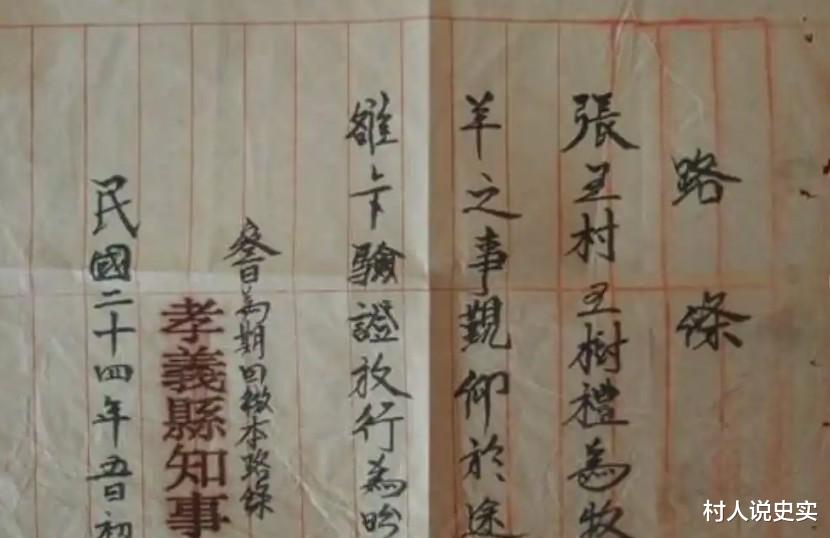 路條
張王村王樹禮為牧
羊之事觀仰於途
雒卡驗證放行為盼
叄日為期回繳本路條
孝義縣知事
民國二十四年五日初
村人说史实